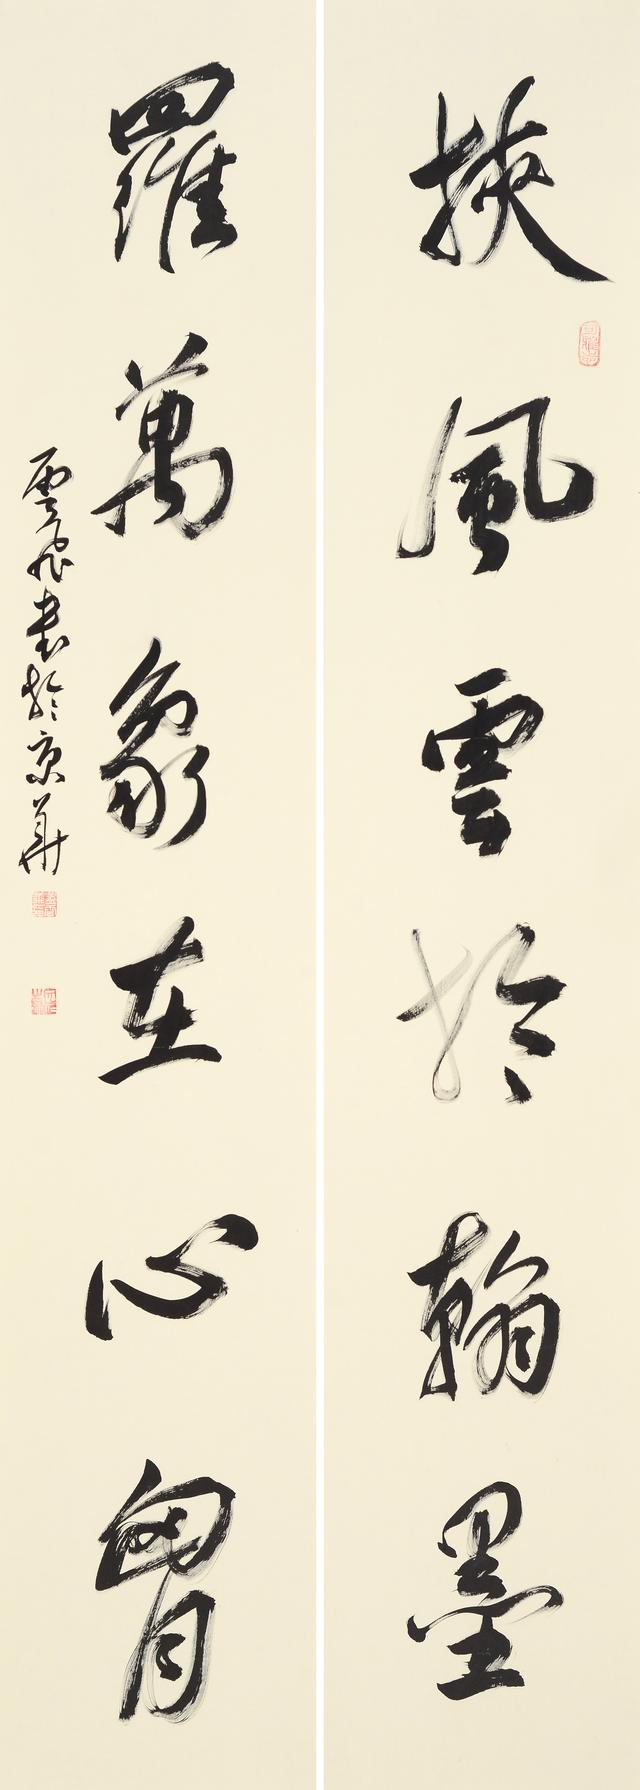 挾風雲於翰墨
羅萬象在心胷
雲飛書於京華